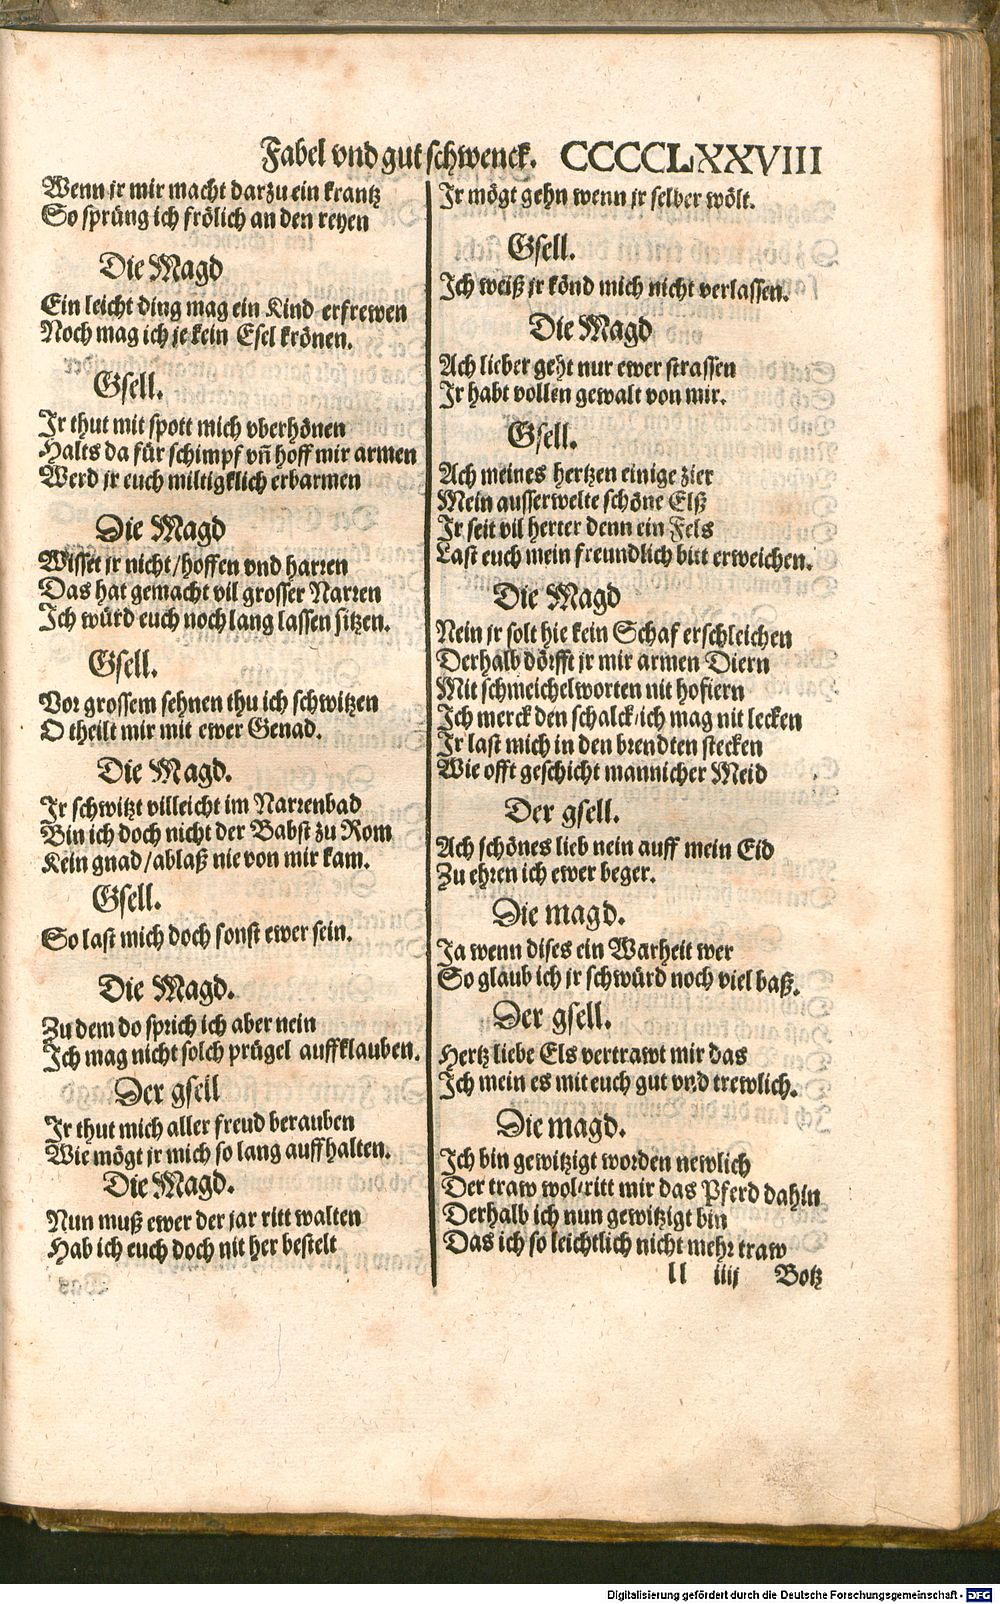 Fabel vnd gut schwenck. CCCCCLXXVIII
Wenn jr mir macht darzu ein krantz
So sprüng ich frölich an den reyen
Die Magd
Ein leicht ding mag ein Kind erfrewen
Noch mag ich je kein Esel krönen.
Gsell.
Jr thut mit spott mich vberhönen
Halts da für schimpf vñ hoff mir armen
Werd jr euch miltigklich erbarmen
Die Magd
Wisset jr nicht/hoffen vnd harren
Das hat gemacht vil grosser Narren
Ich würd euch noch lang lassen sitzen.
Gsell.
Vor grossem sehnen thu ich schwitzen
O theilt mir mit ewer Genad.
Die Magd.
Jr schwitzt villeicht im Narrenbad
Bin ich doch nicht der Babst zu Rom
Kein gnad/ablaß nie von mir kam.
Gsell.
So last mich doch sonst ewer sein.
Die Magd.
Zu dem do sprich ich aber nein
Ich mag nicht solch prügel auffklauben.
Der gsell
Jr thut mich aller freud berauben
Wie mögt jr mich so lang auffhalten.
Die Magd.
Nun muß ewer der jar ritt walten
Hab ich euch doch nit her bestelt
Jr mögt gehn wenn jr selber wölt.
Gsell.
Ich weiß jr könd mich nicht verlassen.
Die Magd
Ach lieber geht nur ewer strassen
Jr habt vollen gewalt von mir.
Gsell.
Ach meines hertzen einige zier
Mein ausserwelte schöne Elß
Jr seit vil herter denn ein Fels
Last euch mein freundlich bitt erweichen.
Die Magd
Nein jr solt hie kein Schaf erschleichen
Derhalb dörfft jr mir armen Diern
Mit schmeichelworten nit hofiern
Ich merck den schalck/ich mag nit lecken
Jr last mich in den brendten stecken
Wie offt geschicht mannicher Meid
Der gsell.
Ach schönes lieb nein auff mein Eid
Zu ehren ich ewer beger.
Die magd.
Ja wenn dises ein Warheit wer
So glaub ich jr schwürd noch viel baß.
Der gsell.
Hertz liebe Els vertrawt mir das
Ich mein es mit euch gut vnd trewlich.
Die magd.
Ich bin gewitzigt worden newlich
Der traw wol/ritt mir das Pferd dahin
Derhalb ich nun gewitzigt bin
Das ich so leichtlich nicht mehr traw
ll iiij Botz
Digitalisierung gefördert durch die Deutsche Forschungsgemeinschaft - DFG